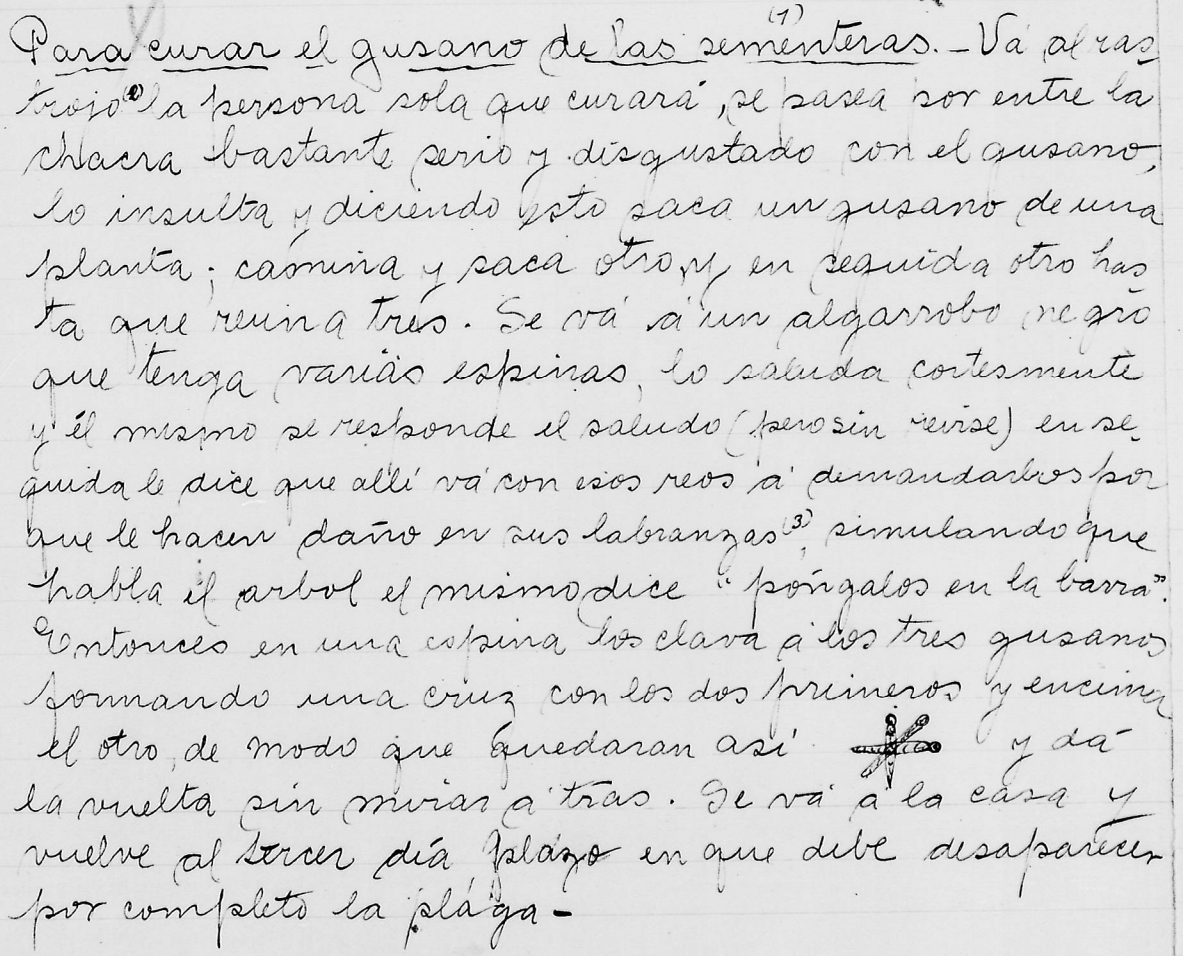 Para curar el gusano de las sementeras.(1) - Vá al ras-
trojo(2) la persona sola que curará, se pasea por entre la
chacra bastante serio y disgustado con el gusano,
lo insulta y diciendo ésto saca un gusano de una
planta; camina y saca otro, y en seguida otro has-
ta que reuina tres. Se vá á un algarrobo negro
que tenga varias espinas, lo saluda cortesmente
y él mismo se responde el saludo (pero sin reirse) en se-
guida le dice que allí vá con esos reos á demandarlos por
que le hacen daño en sus labranzas(3), simulando que
habla el arbol el mismo dice "póngalos en la barra".
Entonces en una espina los clava á los tres gusanos
formando una cruz con los dos primeros y encima
el otro, de modo que quedaran así y dá
la vuelta sin mirar a tras. Se vá á la casa y
vuelve al tercer día, plazo en que debe desaparecer
por completo la plága -